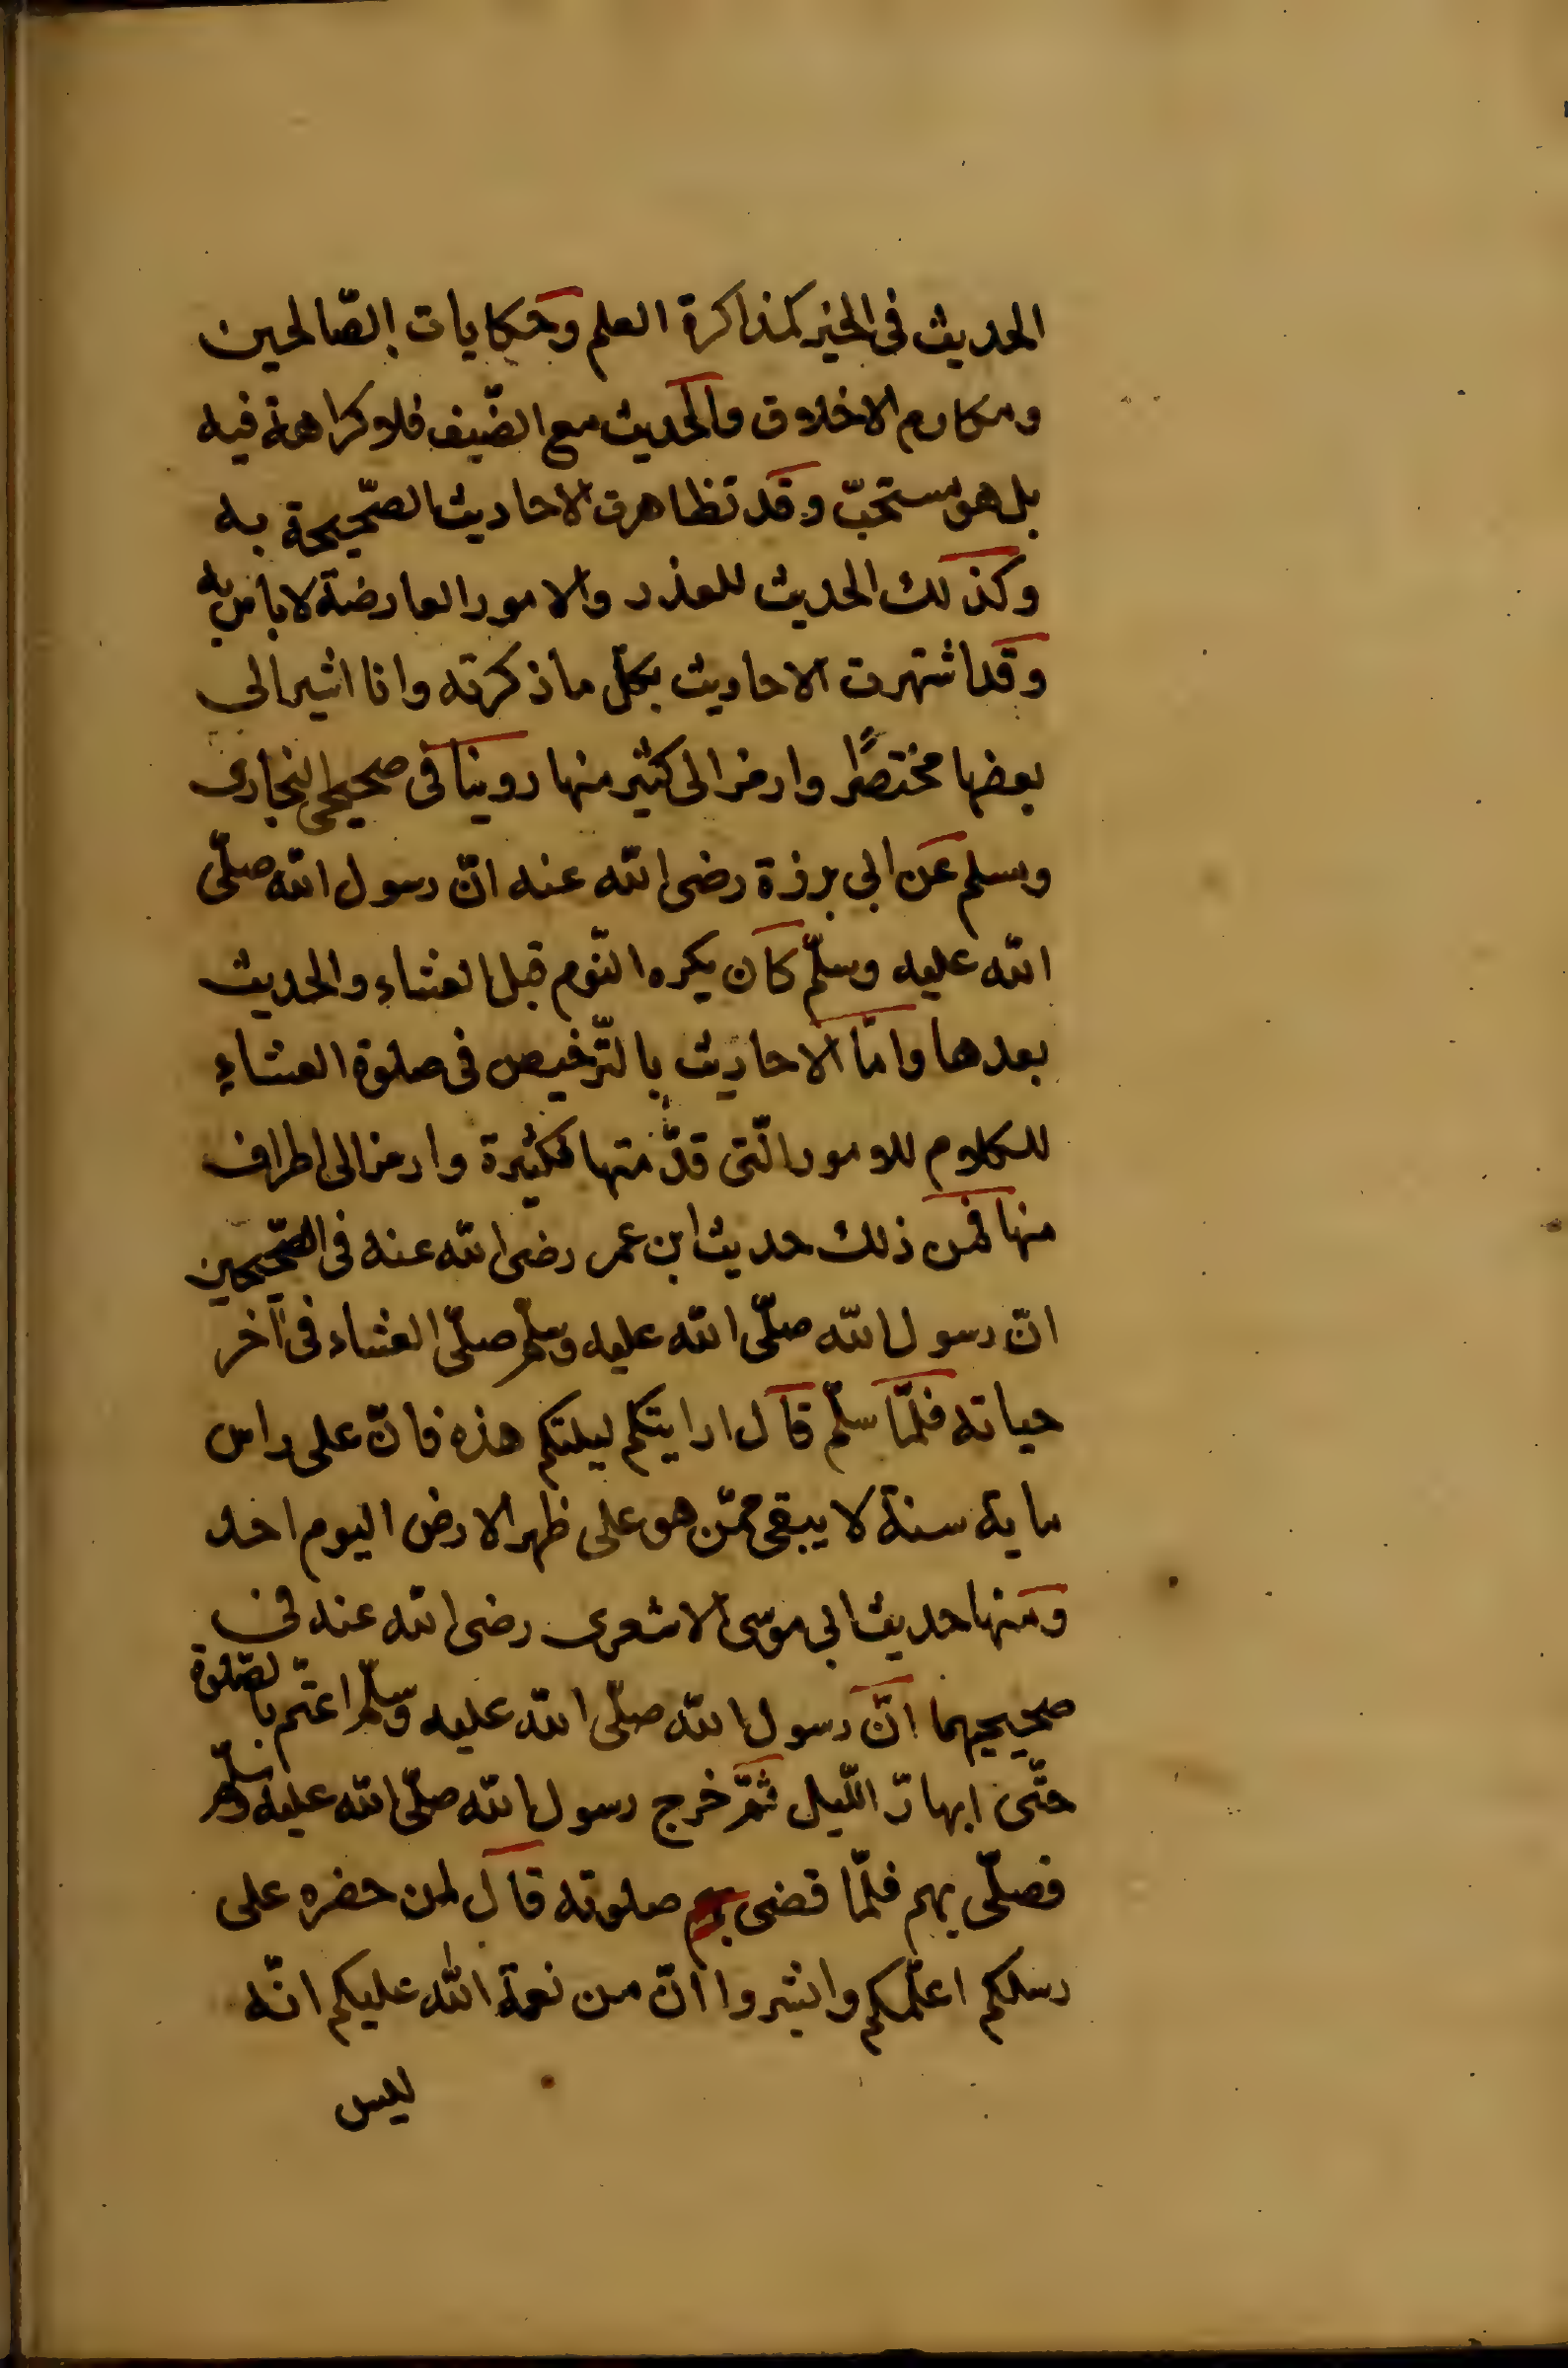 الحديث فى الخير كمذاكرة العلم وحكايات الصّالحين
ومكارم الاخلاق والحديث مع الضّيف فلا كراهة فيه
بل هو مستحبّ وقد تظاهرت الاحاديث الصّحيحة به
وكذلك الحديث للعذر والامور العارضة لا باس به
وقد اشتهرت الاحاديث بكلّ ما ذكرته وانا اشير الى
بعضها مختصرًا وارمز الى كثير منها روينا فى صحيحى البخارى
ومسلم عن ابى برزة رضى الله عنه انّ رسول الله صلّى
الله عليه وسلّم كان يكره النّوم قبل العشاء والحديث
بعدها وامّا الاحاديث بالتّرخيص فى صلوة العشاء
للكلام للامور الّتى قدّمتها فكثيرة وارمز الى اطراف
منها فمن ذلك حديث ابن عمر رضى الله عنه فى الصّحيحين
انّ رسول الله صلّى الله عليه وسلّم صلّى العشاء فى آخر
حياته فلمّا سلّم قال ارايتكم ليلتكم هذه فانّ على راس
ماية سنة لا يبقى ممّن هو على ظهر الارض اليوم احد
ومنها حديث ابى موسى الاشعرى رضى الله عنه فى
صحيحيهما انّ رسول الله صلّى الله عليه وسلّم اعتم بالصّلوة
حتّى ابهارّ اللّيل ثمّ خرج رسول الله صلّى الله عليه وسلّم
فصلّى بهم فلمّا قضى بهم صلوته قال لمن حضره على
رسلكم اعلّمكم وابشروا انّ من نعمة الله عليكم انّه
ليس